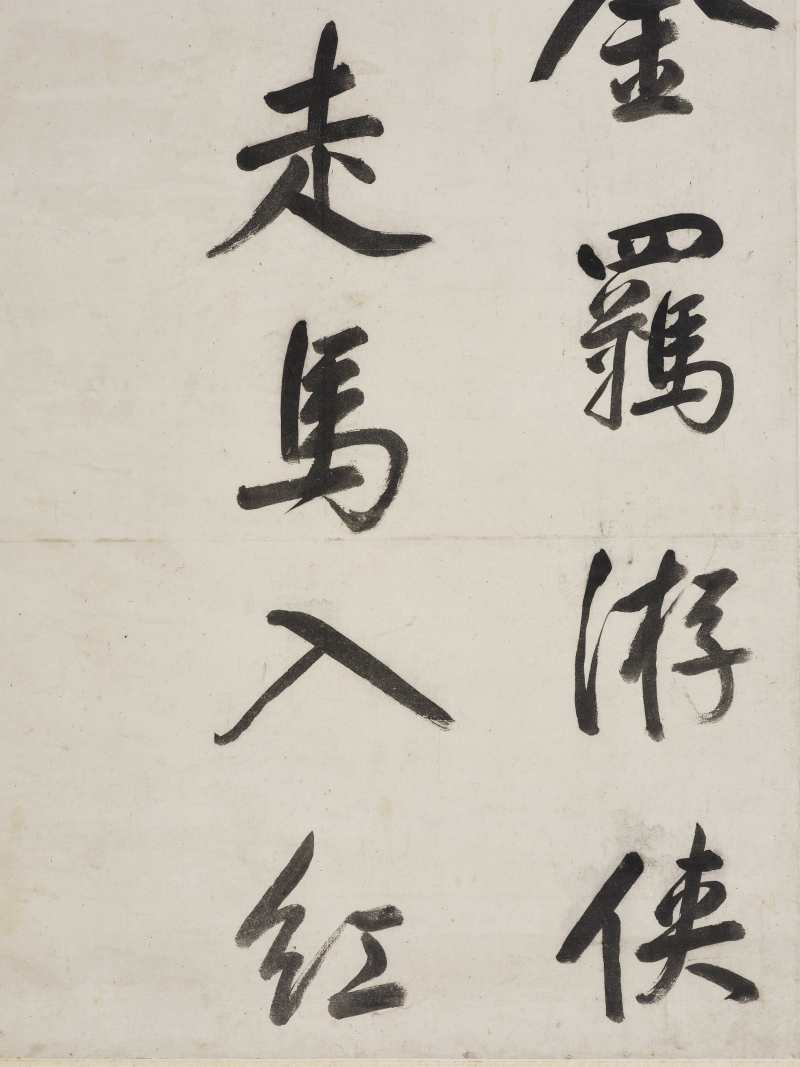 金羈游俠
走馬入紅